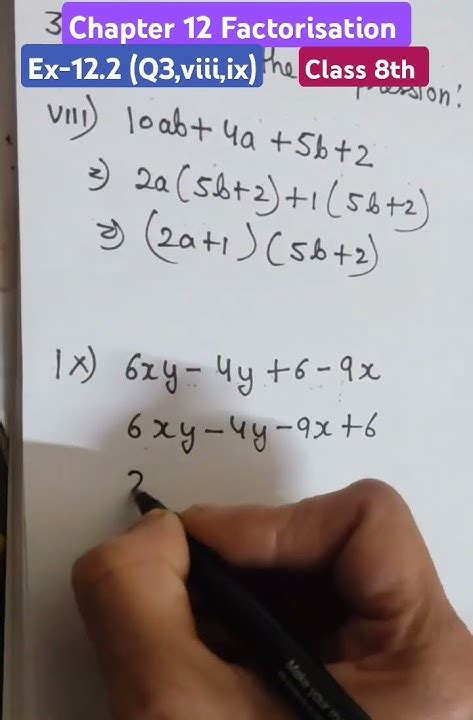 3
Chapter 12 Factorisation
Ex-12.2 (Q3,viii,ix) the Class 8th
viii) 10ab + 4a + 5b + 2
⇒ 2a (5b+2) + 1 (5b+2)
⇒ (2a+1) (5b+2)
ix) 6xy - 4y + 6 - 9x
6xy - 4y - 9x + 6
2
Make your